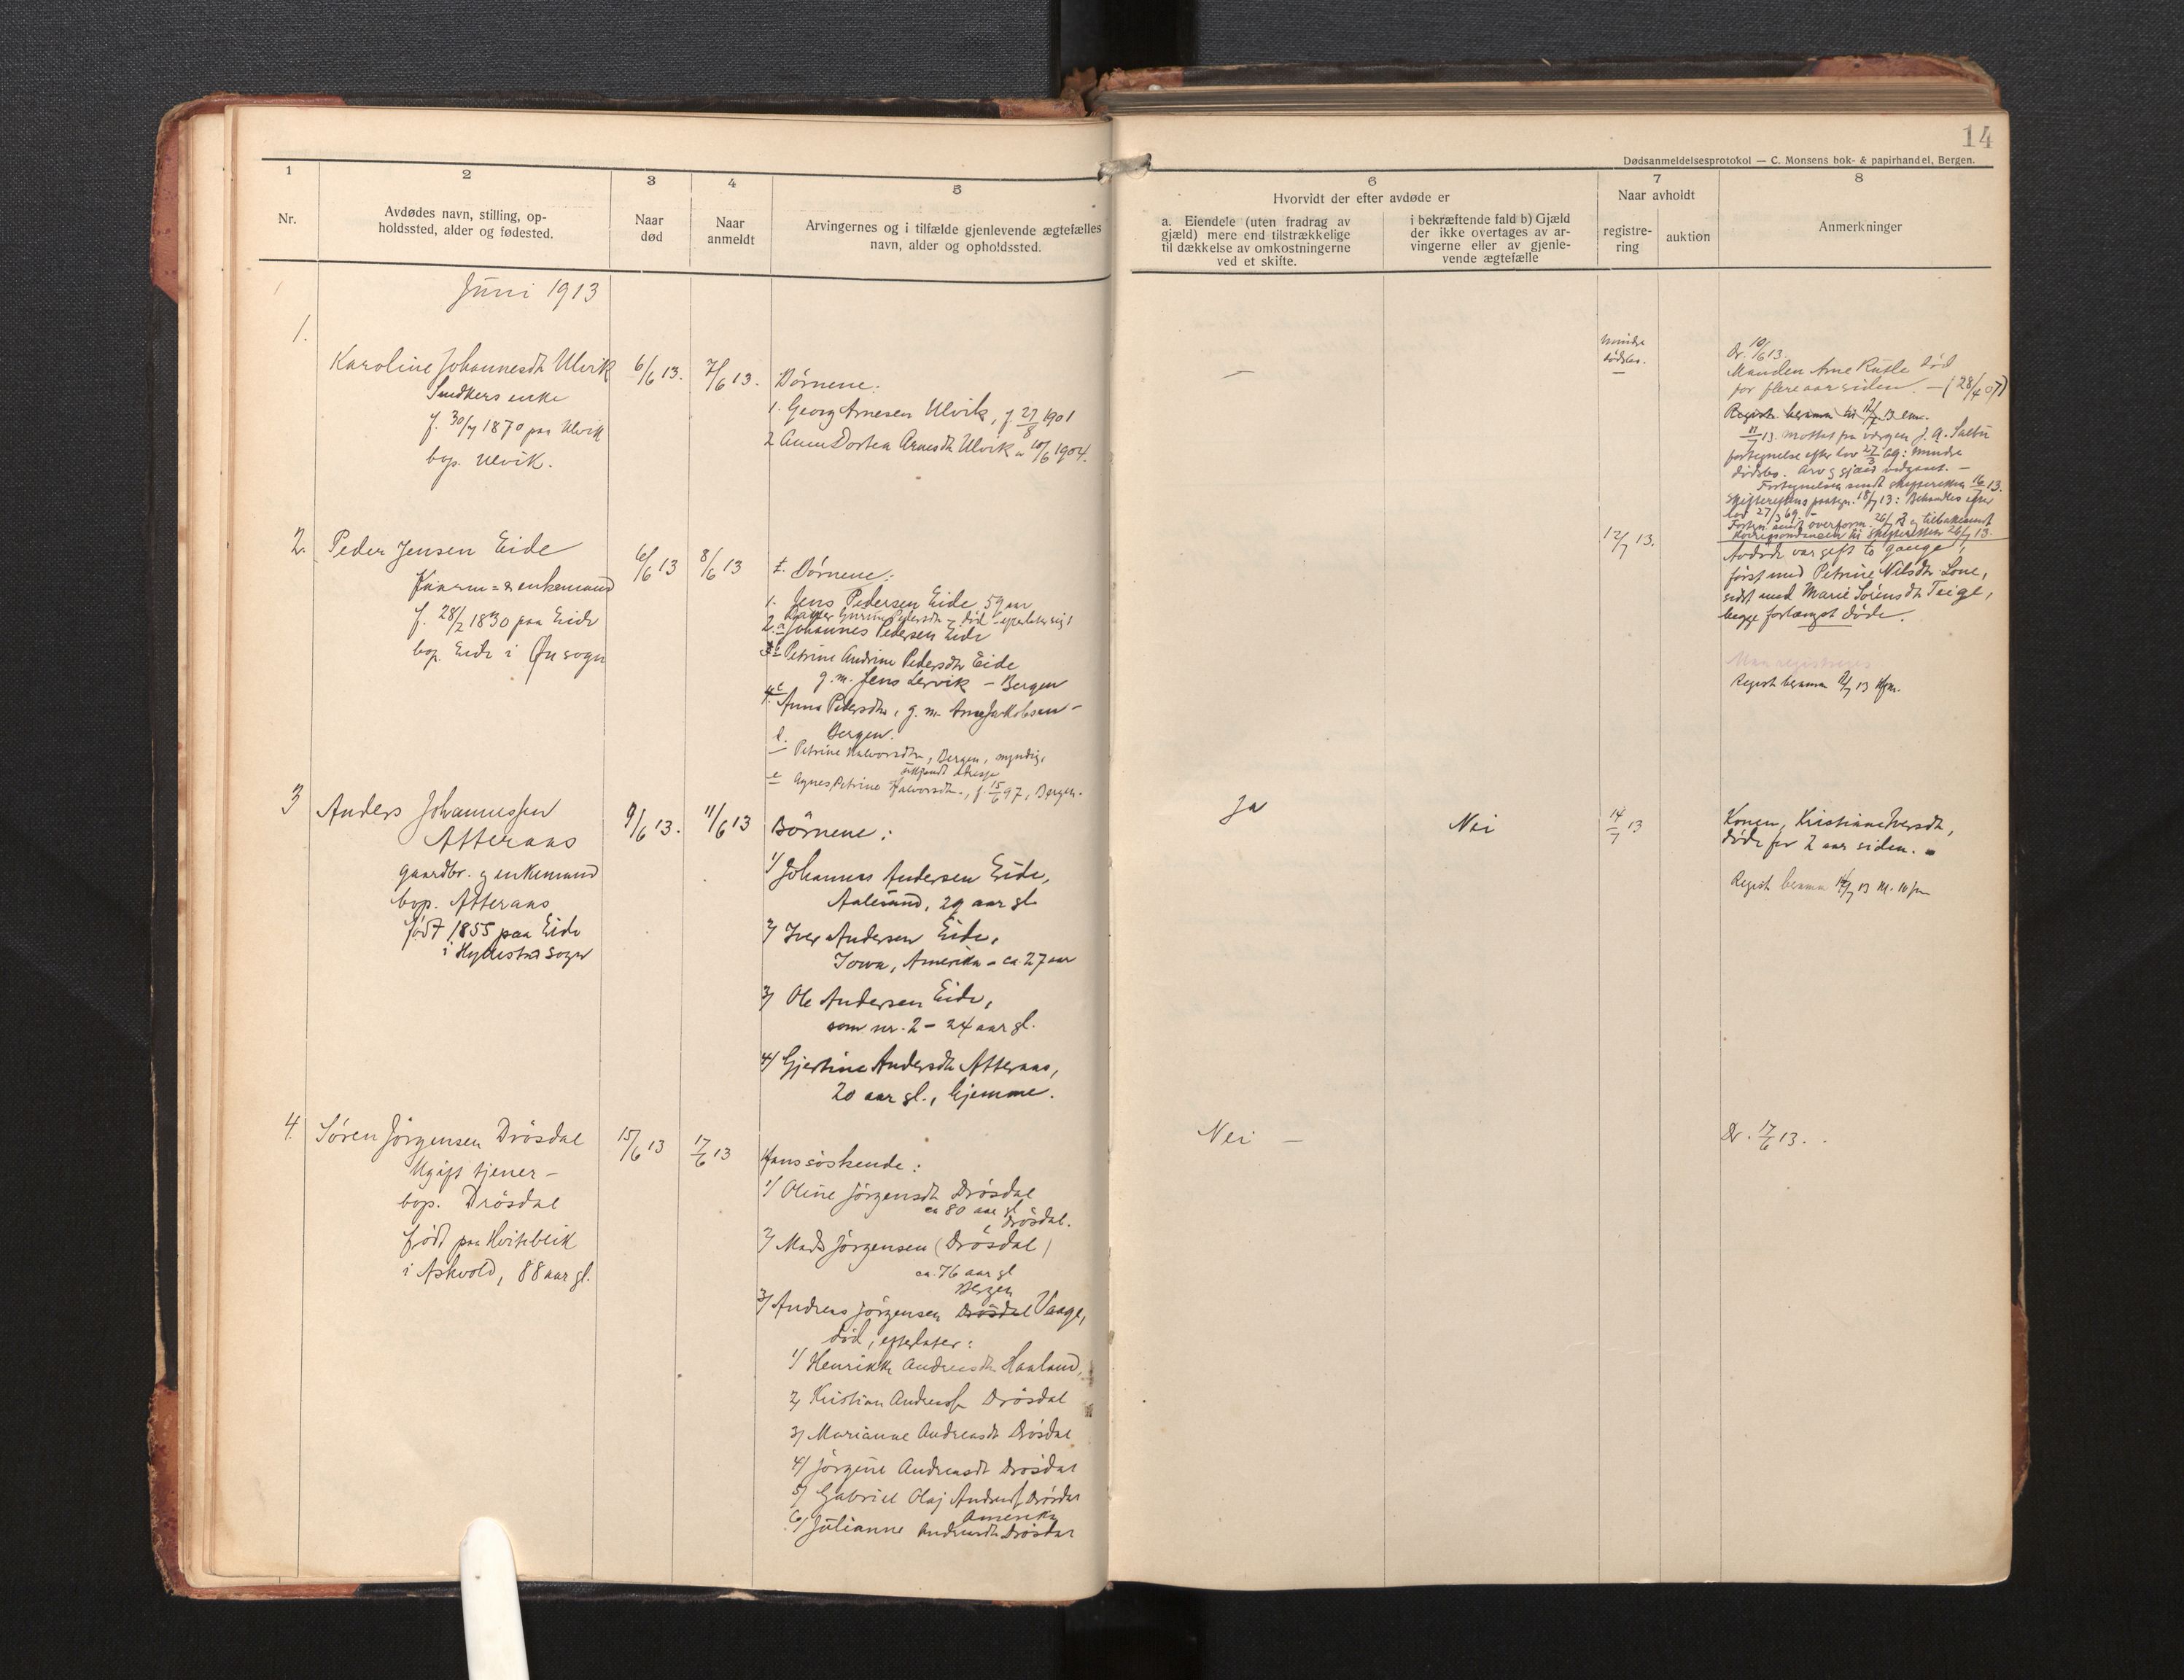 14
Dødsanmeldelsesprotokol — C. Monsens bok- & papirhandel, Bergen.
1
2
3
4
5
6
7
8
Nr.
Avdødes navn, stilling, op-
holdssted, alder og fødested.
Naar
død
Naar
anmeldt
Arvingernes og i tilfælde gjenlevende ægtefælles
navn, alder og opholdssted.
Hvorvidt der efter avdøde er
a. Eiendele (uten fradrag av
gjæld) mere end tilstrækkelige
til dækkelse av omkostningerne
ved et skifte.
i bekræftende fald b) Gjæld
der ikke overtages av ar-
vingerne eller av gjenle-
vende ægtefælle
Naar avholdt
registre-
ring
auktion
Anmerkninger
Juni 1913
1.
Karoline Johannesdt Ulvik
Snedkers enke
f. 30/7 1870 paa Ulvik
bop. Ulvik.
6/6 13.
7/6 13.
Børnene:
1. Georg Arnesen Ulvik, f. 27/8 1901
2 Anna Dortea Arnesdt Ulvik " 10/6 1904.
—
mindre
dødsbo.
Dr. 10/6 13.
Manden Arne Rutle død
for flere aar siden. — (28/4 07)
Registr. beramm. til 12/7 13 em.
11/7 13. Mottat fra værgen J. A. Sæltu
fortegnelse efter lov 27/3 69: mindre
dødsbo. Arv g gjæld vedgaaet. —
Fortegnelsen sendt skifteretten 16/7 13.
Skifterettens paategn. 18/7 13: Behandles efter
lov 27/3 69. —
Fortgn. sendt overform. 26/7 13 og tilbakesendt
korrespondancen til skifteretten 26/7 13.
2.
Peder Jensen Eide
Kaarm= & enkemand
f. 28/2 1830 paa Eide
bop. Eide i Øn sogn
6/6 13
8/6 13
I. Børnene:
1. Jens Pedersen Eide 59 aar
2. Datter Guruna Pedersdtr – død – efterlater sig:
a Johannes Pedersen Eide
b Petrine Andrine Pedersdtr Eide
g. m. Jens Lervik – Bergen
c Anna Pedersdtr, g. m. Arne Jakobsen –
Bergen.
d. Petrine Halvorsdtr, Bergen, myndig,
ukjendt adresse
e Agnes Petrine Halvorsdtr., f. 15/6 97, Bergen.
12/7 13.
Avdøde var gift to gange,
først med Petrine Nilsdtr Lone,
sidst med Marie Sørensdtr Teige,
begge forlængst døde.
Maa registreres
Regist beramm 12/7 13 Kfm.
3
Anders Johannessen
Atteraas
gaardbr. g enkemand
bop. Atteraas
født 1855 paa Eide
i Hyllestad sogn
9/6 13.
11/6 13
Børnene:
1/ Johannes Andersen Eide,
Aalesund, 29 aar gl.
2/ Iver Andersen Eide,
Iowa, Amerika – ca. 27 aar
3/ Ole Andersen Eide,
som nr. 2 – 24 aar gl.
4/ Gjertine Andersdt Atteraas,
20 aar gl., hjemme.
Ja
Nei
14/7 13
Konen, Kristiane Iversdt,
døde for 2 aar siden. –
Regist beramm 14/7 13 kl. 10 fm
4.
Søren Jörgensen Drösdal
Ugift tjener –
bop. Drösdal
født paa Hviteblik
i Askvold, 88 aar gl.
15/6 13
17/6 13
Hans söskende:
1/ Oline Jörgensdt Drösdal
ca 80 aar gl
Drösdal.
2/ Mads Jörgensen (Drösdal)
ca. 76 aar gl
Bergen
3/ Andreas Jörgensen Drösdal Vaage,
død, efterlater:
1/ Henrikke Andreasdt Haaland,
2/ Kristian Andreass Drösdal
3/ Marianne Andreasdt Drösdal
4/ Jörgine Andreasdt Drösdal
5/ Gabriel Olaj Andreass Drösdal
Amerika
6/ Julianne Andreasdt Drösdal
Nei —
Dr. 17/6 13.